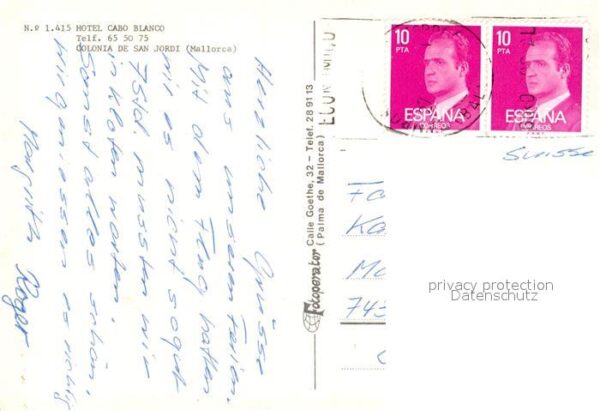 N.º 1.415 HOTEL CABO BLANCO
Telf. 65 50 75
COLONIA DE SAN JORDI (Mallorca)
Herzliche Grüsse
aus unseren Ferien.
Mit dem Flug hatten
wir es nicht so gut
7 Std. mussten wir
in Kloten warten.
Sonst alles schön,
wir geniessen es richtig
Roger
Fotoperator Calle Goethe, 32 – Telef. 28 91 13
(Palma de Mallorca)
10
PTA
ESPAÑA
CORREOS
10
PTA
ESPAÑA
CORREOS
Suisse
Fa
Ka
743
privacy protection
Datenschutz